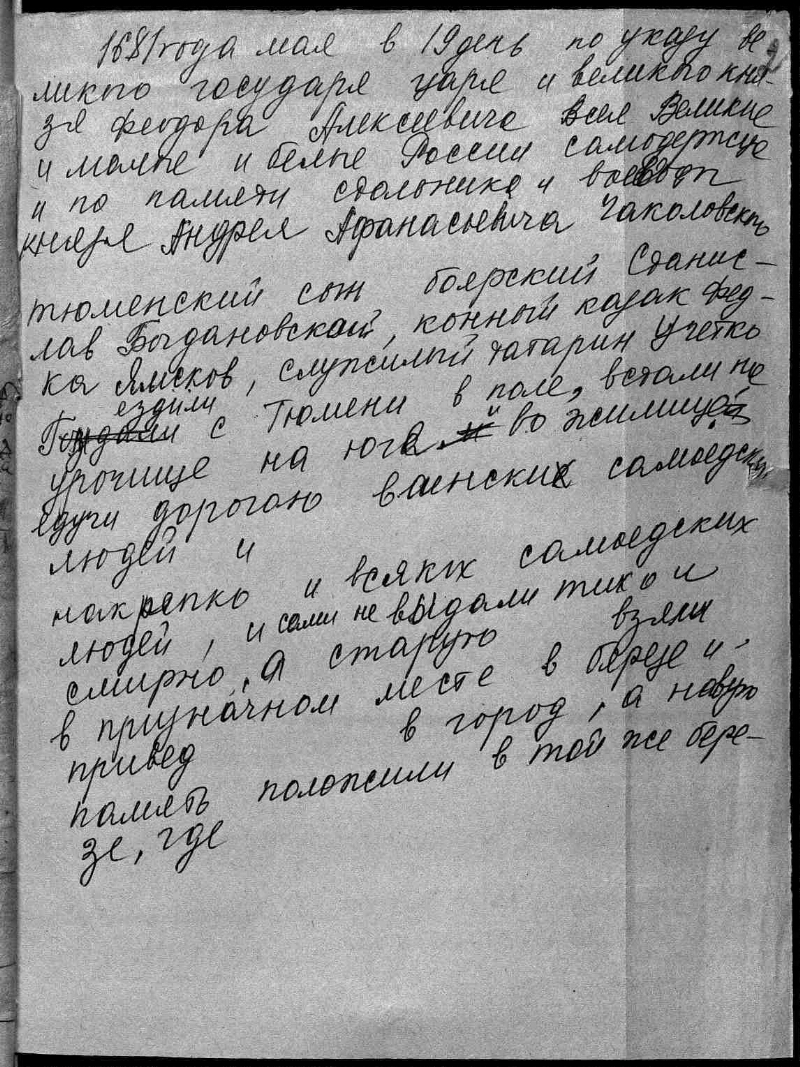 1681 года мая в 19 день по указу ве-
ликого государя царя и великого кня-
зя Феодора Алексеевича всея Великие
и малые и белые России самодержца
и по памяти стольника и воеводы
князя Андрея Афанасьевича Чаколовского
тюменский сын боярский Станис-
лав Богдановской, конный казак Фед-
ка Ямсков, служилый татарин Учетко
ездили
с Тюмени в поле, встали на
урочище на юга во жилища
едучи дорогою воинских самоедских
людей и
накрепко и всяких самоедских
людей, и сами не выдали тихо и
смирно, а старую взяли
в призначном месте в березе и
привед в город, а новую
память положили в той же бере-
зе, где